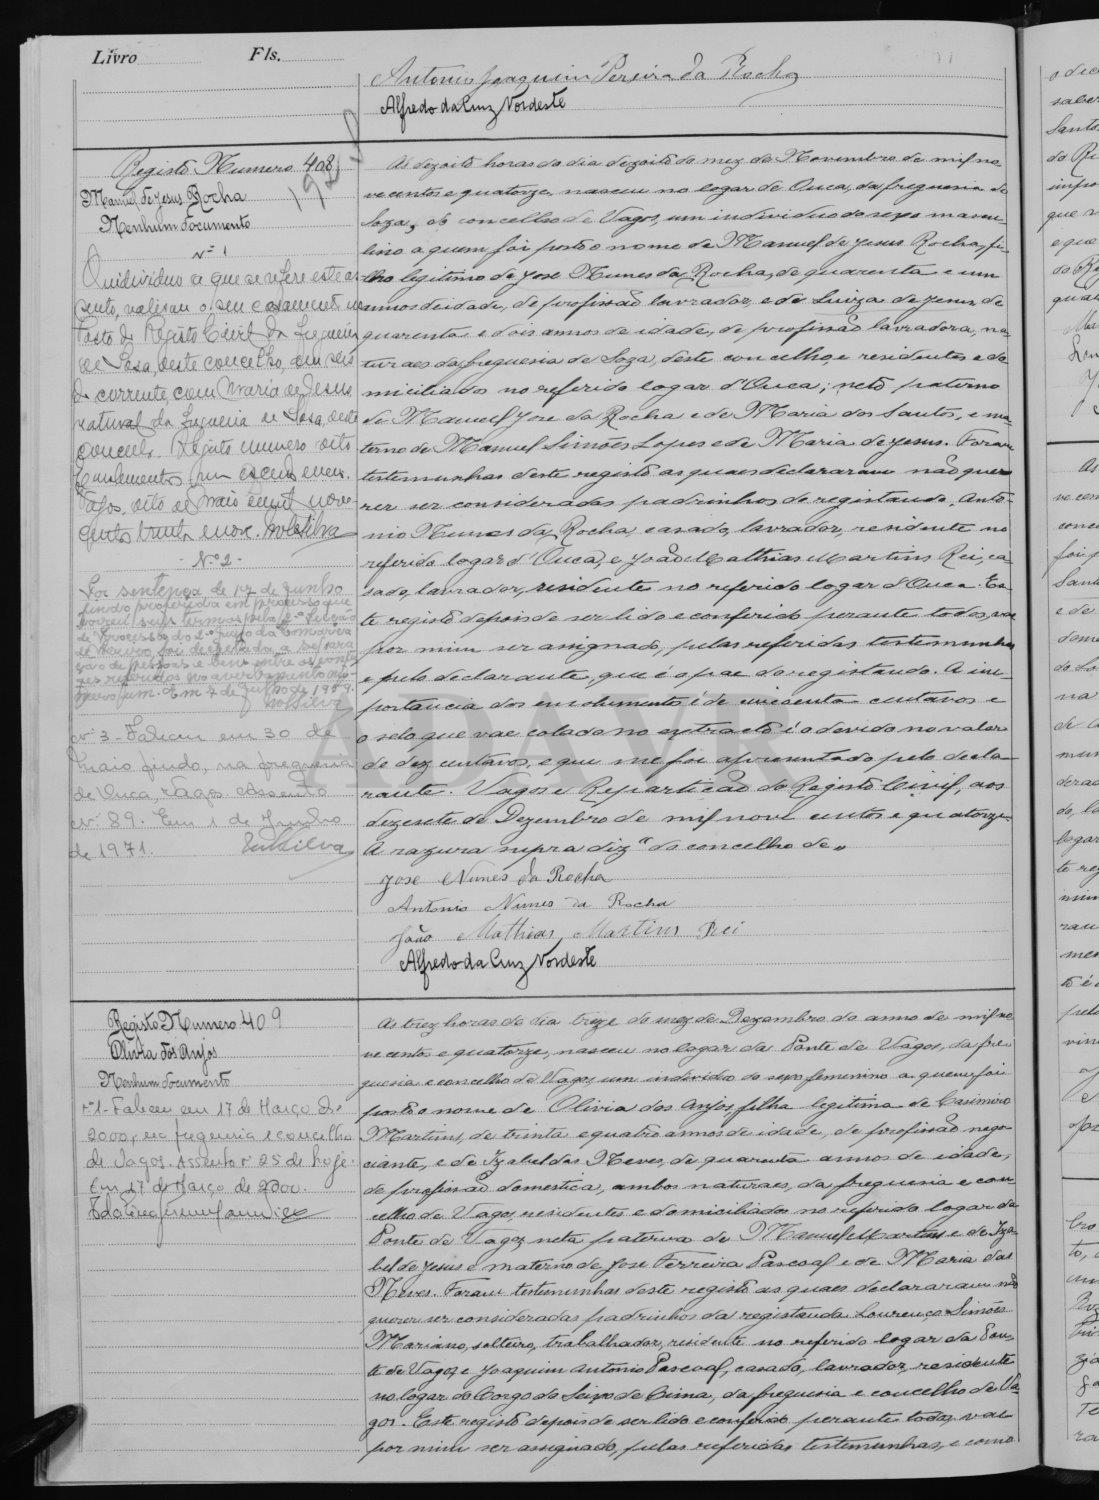 Livro Fls.
Antonio Joaquim Pereira da Rocha
Alfredo da Cruz Nordeste
Registo Numero 408
Manuel de Jesus Rocha
Nenhum documento
Nº 1
O individuo a que se refere este as
sento, realizou o seu casamento no
Posto do Registo Civil da freguesia
de Sosa, deste concelho, em seis
do corrente, com Maria de Jesus,
natural da freguesia de Sosa, deste
concelho. Registo numero oito
Emolumentos um escudo
Vagos, oito de Maio de mil nove
centos trinta e nove.
- Nº 2 -
Por sentença de 17 de Junho
findo, proferida em processo que
correu seus termos pela 2ª secção
de Processos do 2º juizo da comarca
de Aveiro, foi decretada a separa
ção de pessoas e bens entre os conju
ges referidos no averbamento nú
mero um. Em 7 de Julho de 1959.
Nº 3 - Faleceu em 30 de
Maio findo, na freguesia
de Ouca, Vagos. Assento
Nº 89. Em 1 de Junho
de 1971.
Ás dezoito horas do dia dezoito do mez de Novembro de mil no-
vecentos e quatorze, nasceu no logar de Ouca, da freguesia de
Soza, do concelho de Vagos, um individuo do sexo mascu-
lino a quem foi posto o nome de Manuel de Jesus Rocha, fi-
lho legitimo de Jose Nunes da Rocha, de quarenta e um
annos de idade, de profissão lavrador, e de Luiza de Jesus, de
quarenta e dois annos de idade, de profissão lavradora, na-
turaes da freguesia de Soza, deste concelho, e residentes e do
miciliados no referido logar d'Ouca; neto paterno
de Manuel Jose da Rocha e de Maria dos Santos, e ma-
terno de Manuel Simões Lopes e de Maria de Jesus. Foram
testemunhas deste registo as quaes declararam não quere
rer ser consideradas padrinhos do registando, Anto-
nio Nunes da Rocha, casado, lavrador, residente no
referido logar d'Ouca, e João Mathias Martins Rei, ca
sado, lavrador, residentes no referido logar d'Ouca. Es
te registo depois de ser lido e conferido perante todos, vae
por mim ser assignado, pelas referidas testemunhas
e pelo declarante, que é o pae do registando. A im-
portancia dos emolumentos é de cincoenta centavos e
o selo que vae colado no extracto é o devido no valor
de dez centavos, e que me foi apresentado pelo decla-
rante. Vagos e Repartição do Registo Civil, aos
dezesete de Dezembro de mil nove centos e quatorze.
A rasura supra diz "do concelho de"
Jose Nunes da Rocha
Antonio Nunes da Rocha
João Mathias Martins Rei
Alfredo da Cruz Nordeste
ADAVR
Registo Numero 409
Olivia dos Anjos
Nenhum documento
Nº 1 - Faleceu em 17 de Março de
2000, na freguesia e concelho
de Vagos. Assento nº 25 de hoje.
Em 17 de Março de 2000.
As trez horas do dia treze do mez de Dezembro do anno de mil no
ve centos e quatorze, nasceu no logar da Ponte de Vagos, da fre-
guesia e concelho de Vagos, um individuo do sexo feminino a quem foi
posto o nome de Olivia dos Anjos, filha legitima de Casimiro
Martins, de trinta e quatro annos de idade, de profissão nego-
ciante, e de Izabel das Neves, de quarenta annos de idade,
de profissão domestica, ambos naturaes, da freguesia e con
celho de Vagos, residentes e domiciliados no referido logar da
Ponte de Vagos, neta paterna de Manuel Martins e de Iza-
bel de Jesus e materno de Jose Ferreira Pascoal e de Maria das
Neves. Foram testemunhas deste registo as quaes declararam não
querer ser consideradas padrinhos da registanda Lourenço Simões
Mariano, solteiro, trabalhador, residente no referido logar da Pon-
te de Vagos, e Joaquim Antonio Pascoal, casado, lavrador, residente
no logar do Corgo do Seixo de Cima, da freguesia e concelho de Va-
gos. Este registo depois de ser lido e conferido perante todos, vae
por mim ser assignado, pelas referidas testemunhas, e como